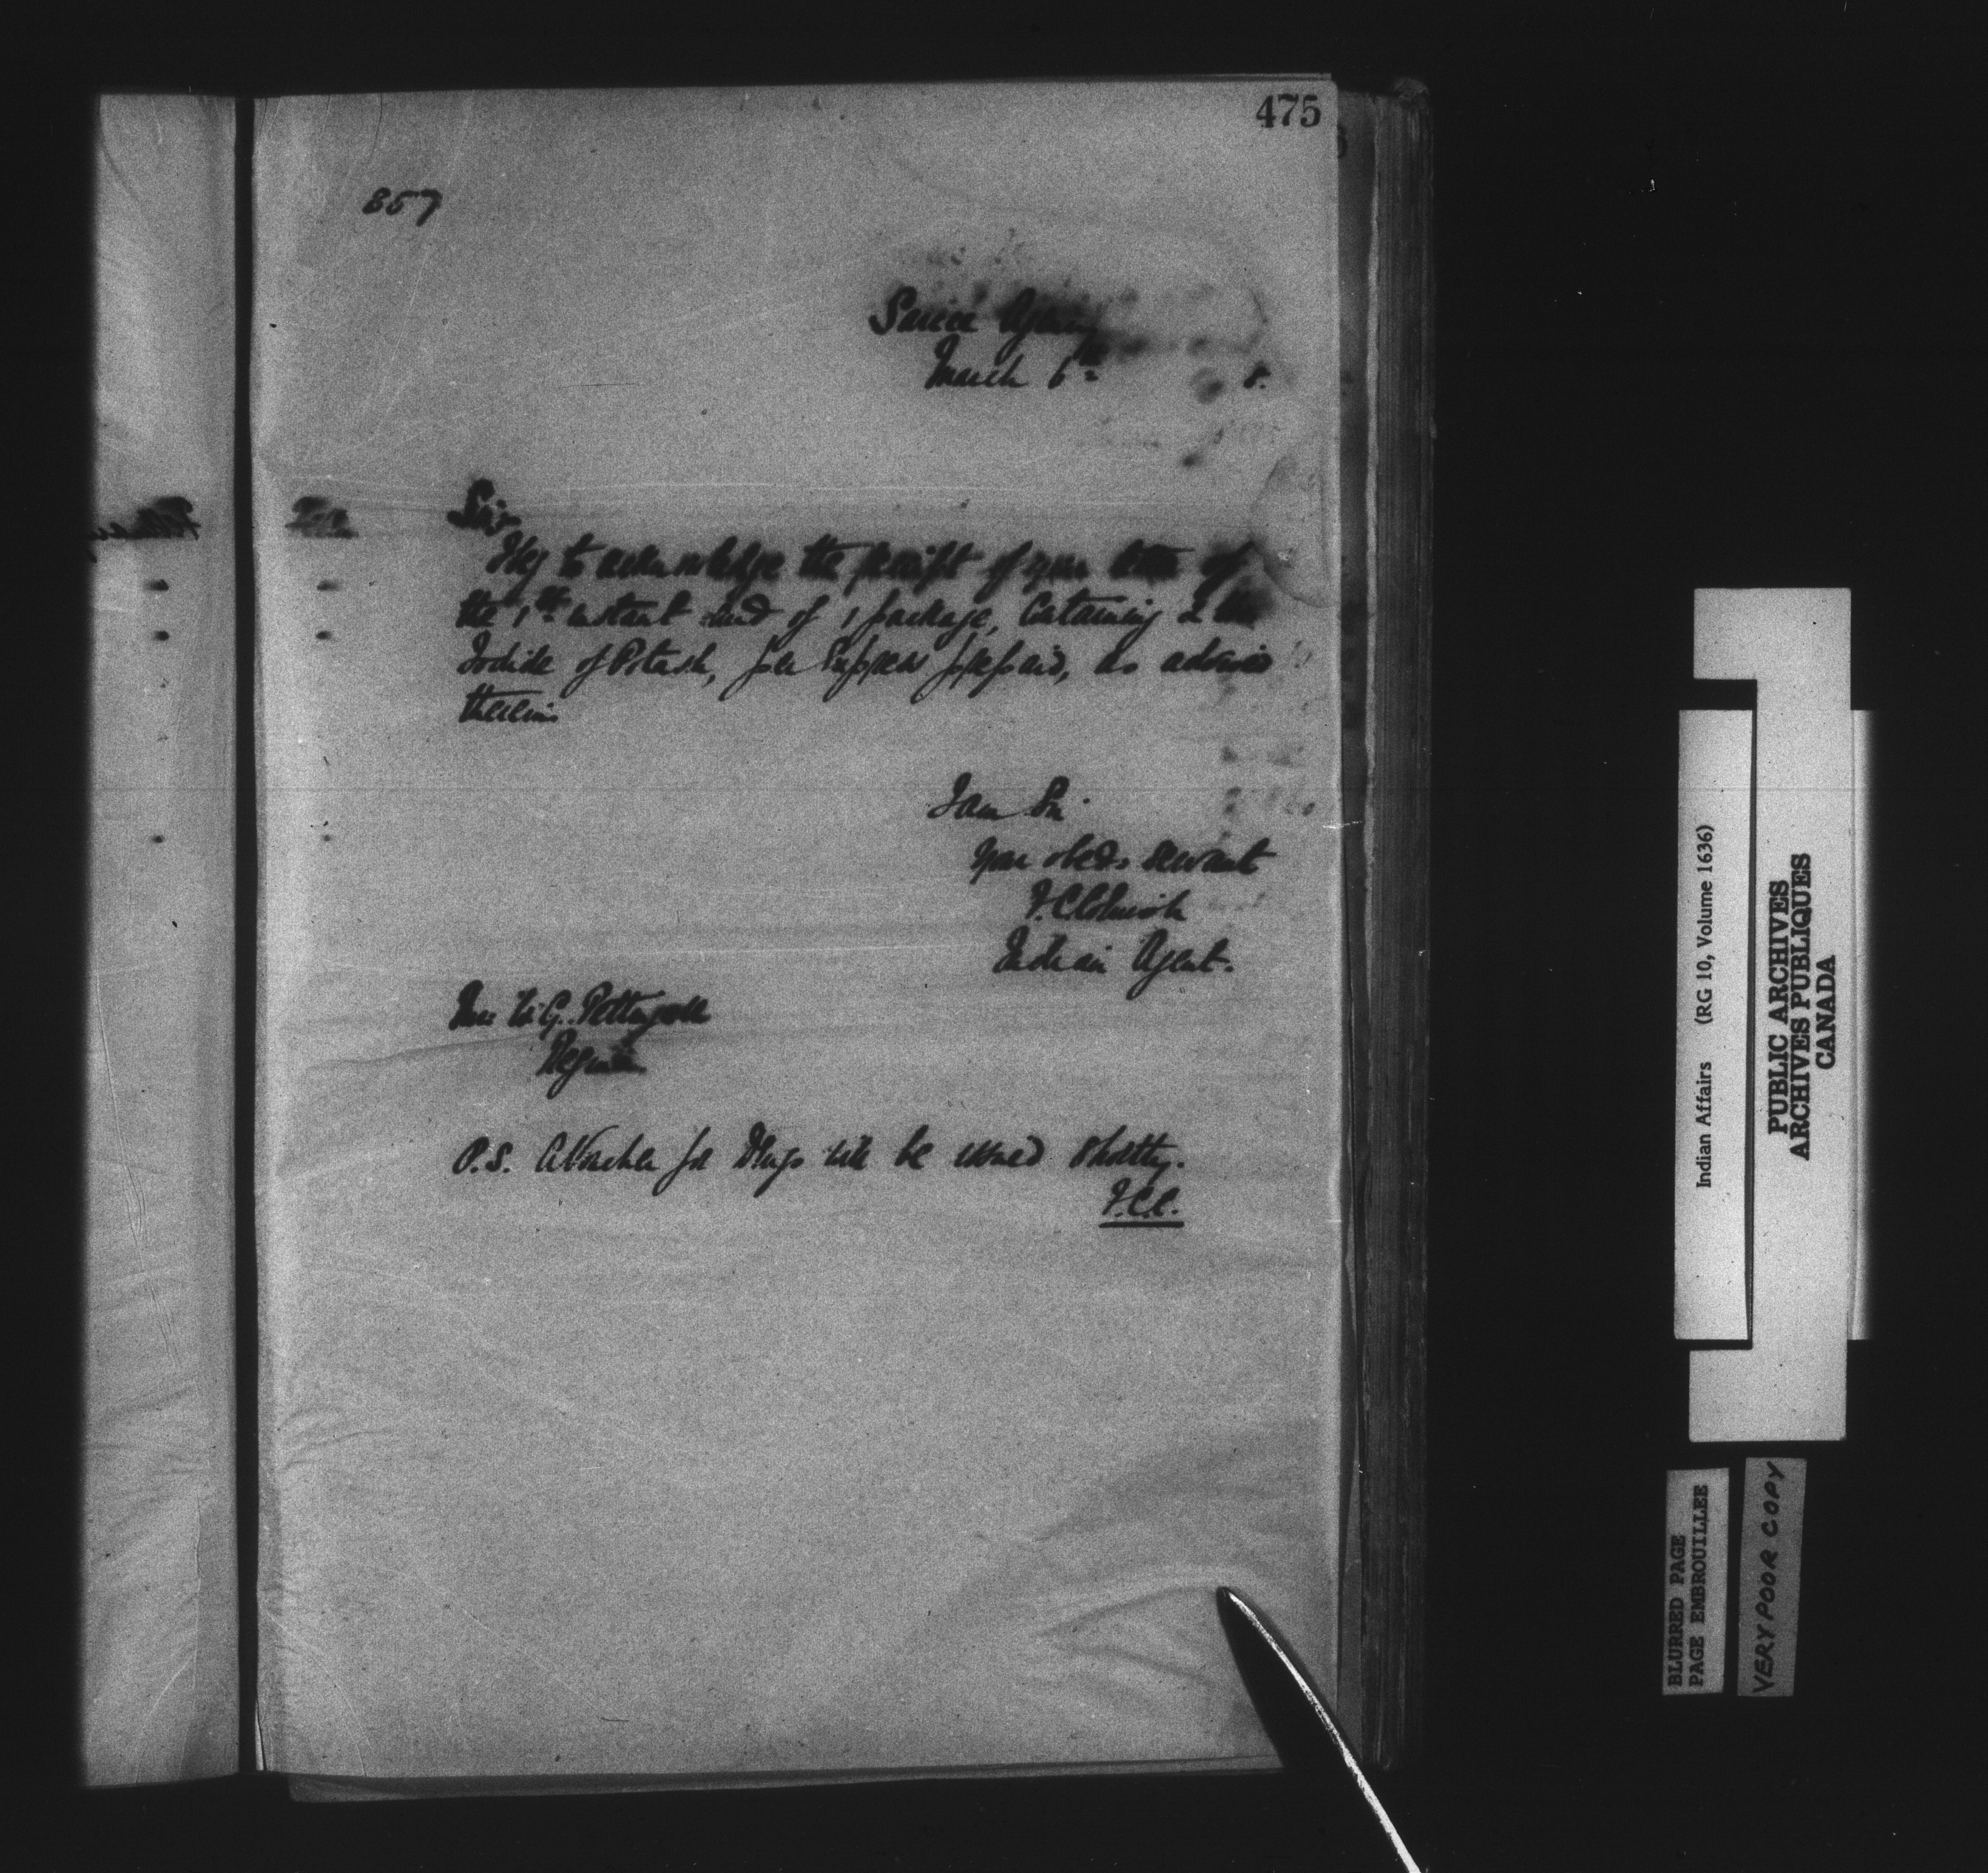 475
857
Sarcee Agency
March 6th 8.
Sir
I beg to acknowledge the receipt of your letter of
the 1st instant and of 1 package, Containing 2
Iodide of Potash, per Express prepaid, as advised
therein.
I am Sir
Your obedt. servant
F.C. Cornish
Indian Agent.
W. G. Pettingell
Regina
P.S. A Voucher for Drugs will be issued shortly.
F.C.C.
Indian Affairs (RG 10, Volume 1636)
PUBLIC ARCHIVES
ARCHIVES PUBLIQUES
CANADA
BLURRED PAGE
PAGE EMBROUILLEE
VERY POOR COPY